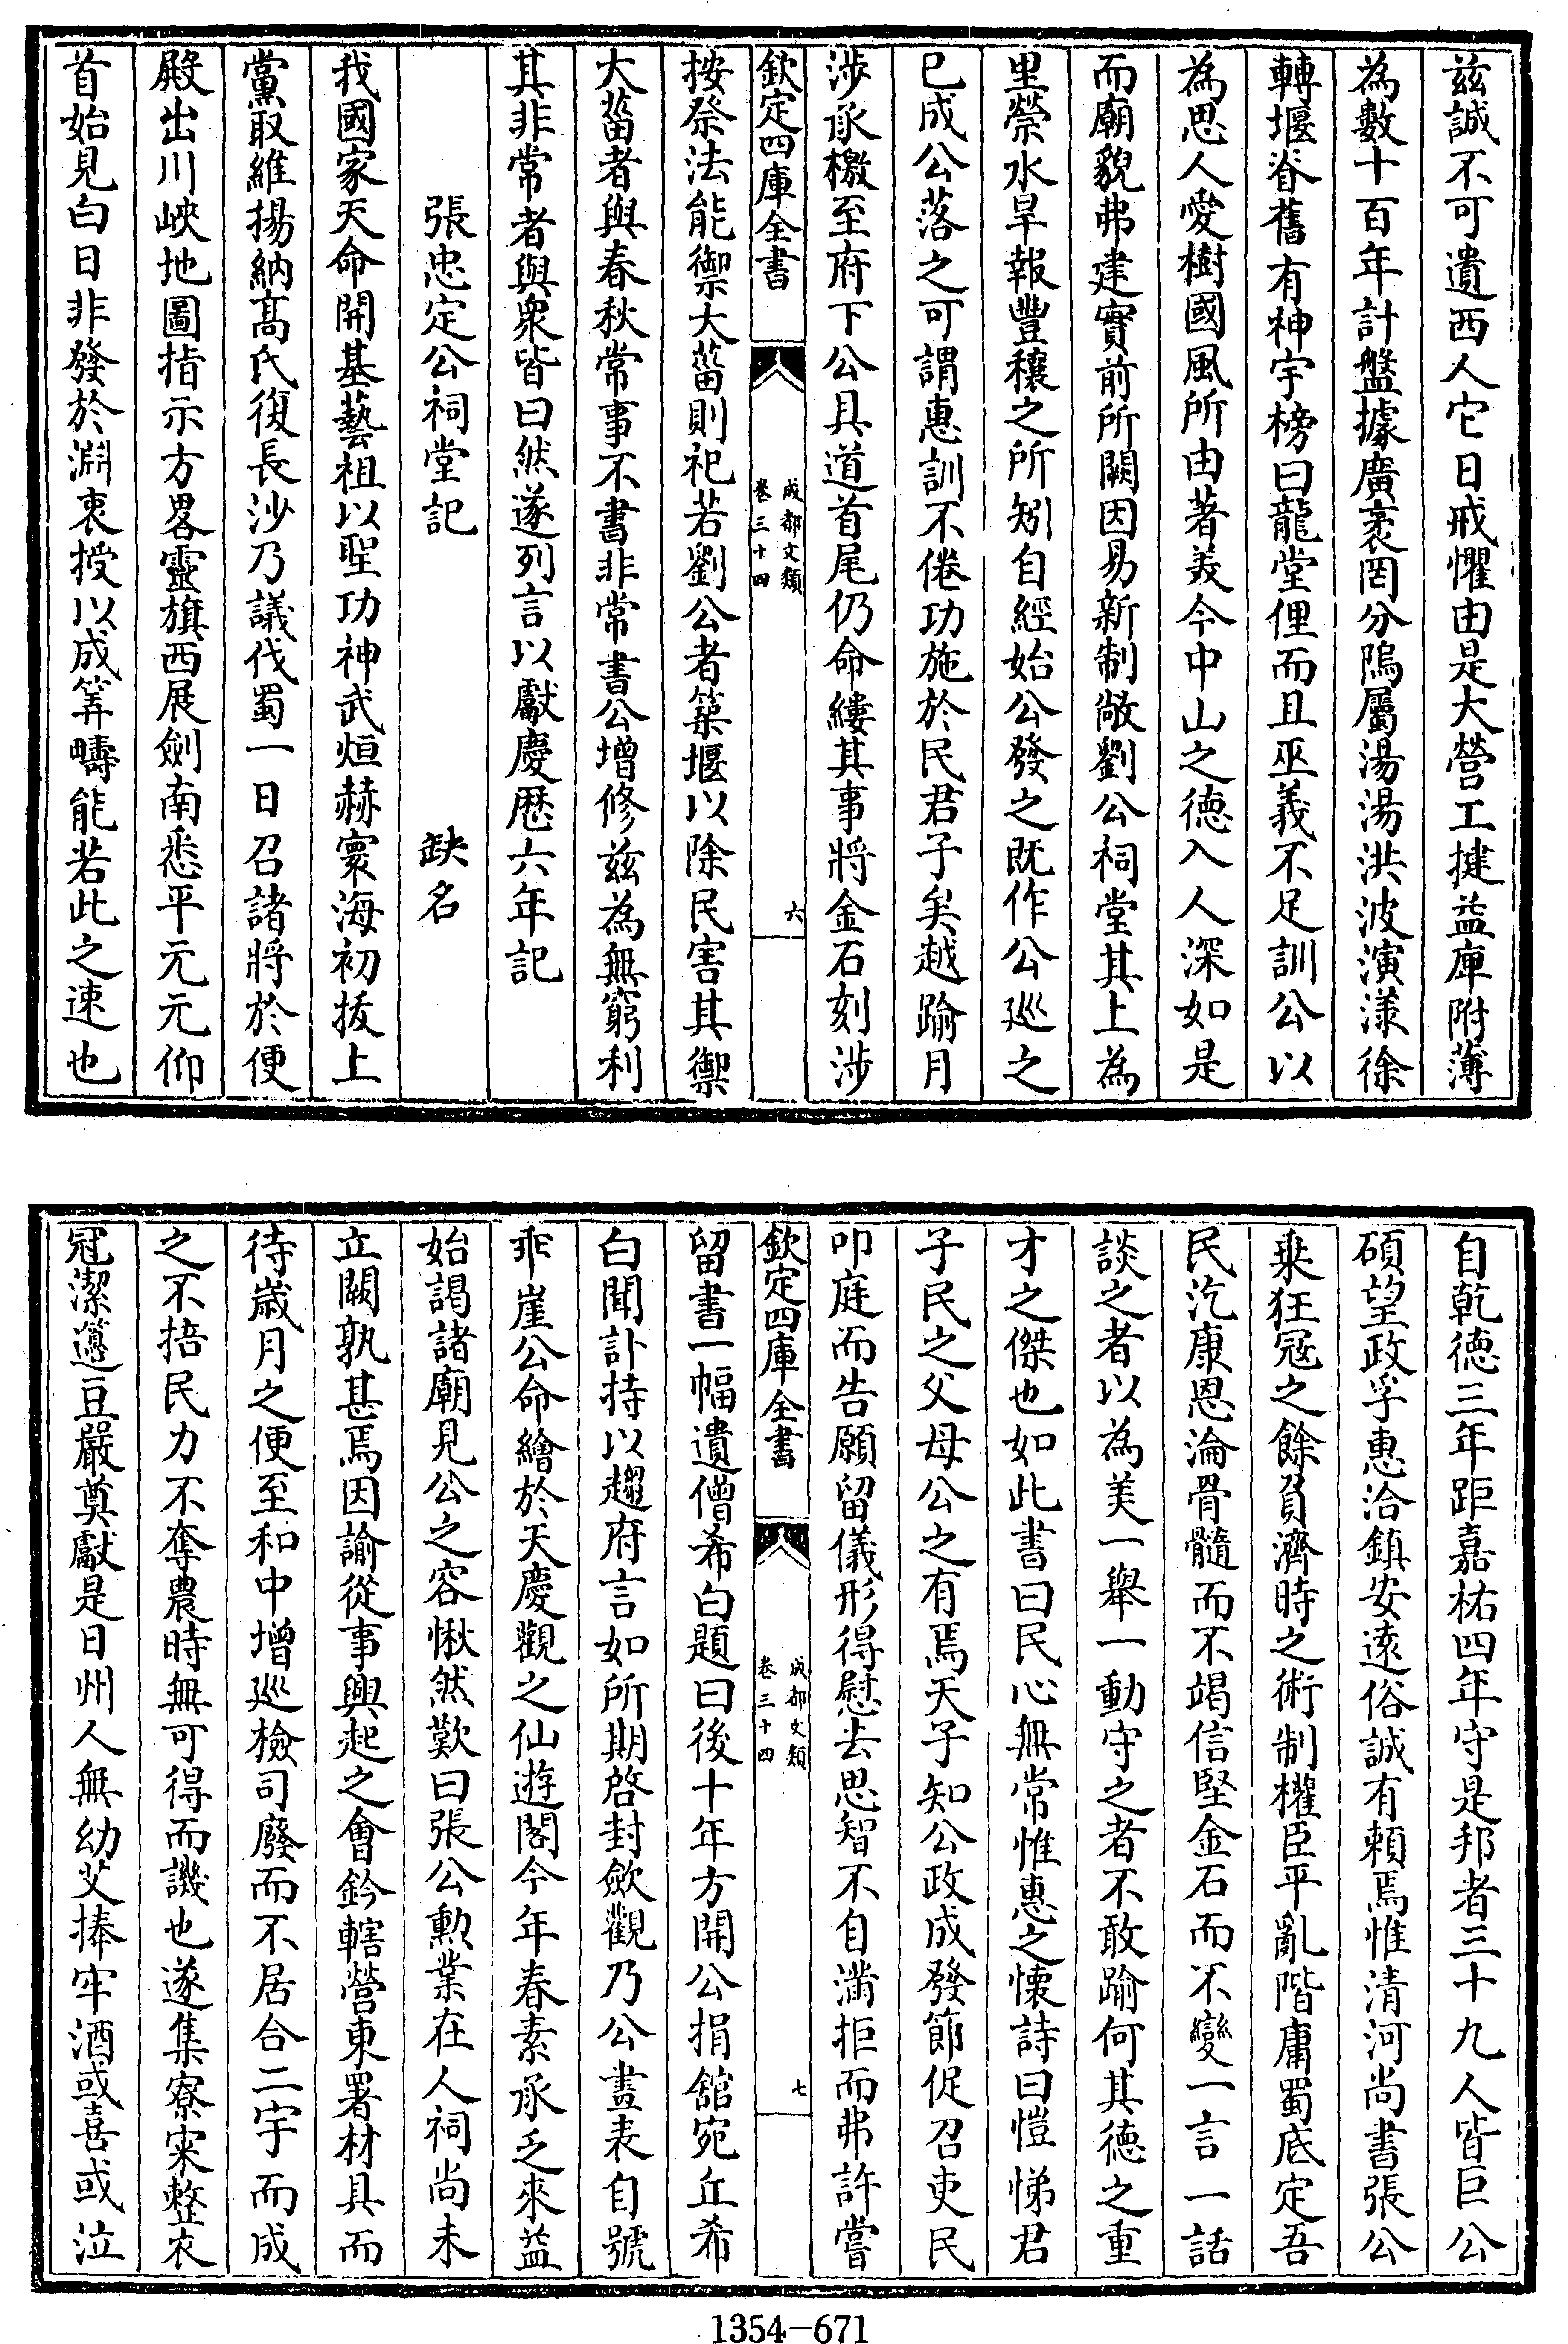 茲誠不可遺西人它日戒懼由是大營工揵益庫附薄
為數十百年計盤據廣袤罔分隝屬湯湯洪波演漾徐
轉堰脊舊有神宇榜曰龍堂俚而且巫義不足訓公以
為思人愛樹國風所由著美今中山之德入人深如是
而廟貌弗建實前所闕因易新制敞劉公祠堂其上為
里禜水旱報豐穰之所矧自經始公發之既作公巡之
已成公落之可謂惠訓不倦功施於民君子矣越踰月
涉承檄至府下公具道首尾仍命縷其事將金石刻涉
欽定四庫全書
成都文類
卷三十四
六
按祭法能禦大菑則祀若劉公者築堰以除民害其禦
大菑者與春秋常事不書非常書公增修茲為無窮利
其非常者與衆皆曰然遂列言以獻慶厯六年記
張忠定公祠堂記 缺名
我國家天命開基藝祖以聖功神武烜赫寰海初拔上
黨取維揚納髙氏復長沙乃議伐蜀一日召諸將於便
殿出川峽地圖指示方畧靈旗西展劍南悉平元元仰
首始見白日非發於淵衷授以成筭疇能若此之速也
自乾德三年距嘉祐四年守是邦者三十九人皆巨公
碩望政孚惠洽鎮安逺俗誠有賴焉惟清河尚書張公
乗狂冦之餘負濟時之術制櫂臣平亂階庸蜀底定吾
民汔康恩淪骨髓而不竭信堅金石而不變一言一話
談之者以為美一舉一動守之者不敢踰何其德之重
才之傑也如此書曰民心無常惟惠之懐詩曰愷悌君
子民之父母公之有焉天子知公政成發節促召吏民
叩庭而告願留儀形得慰去思智不自滿拒而弗許嘗
欽定四庫全書
成都文類
卷三十四
七
留書一幅遺僧希白題曰後十年方開公捐舘宛丘希
白聞訃持以趨府言如所期啓封歛觀乃公畫表自號
乖崖公命繪於天慶觀之仙遊閣今年春素承乏來益
始謁諸廟見公之容愀然歎曰張公勲業在人祠尚未
立闕孰甚焉因諭從事興起之會鈐轄營東署材具而
待嵗月之便至和中增巡檢司廢而不居合二宇而成
之不掊民力不奪農時無可得而譏也遂集寮寀整衣
冠潔籩豆嚴奠獻是日州人無幼艾捧牢酒或喜或泣
1354-671